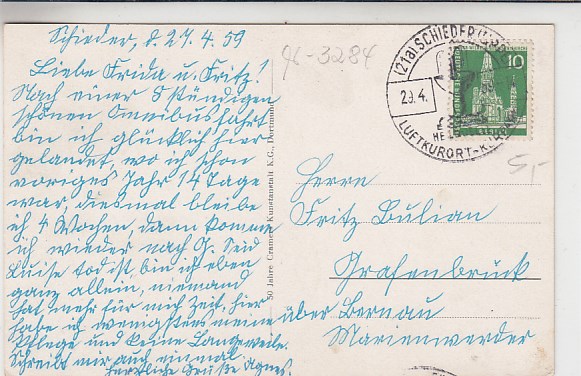 Schieder, d. 27.4.59
Liebe Frida u. Fritz!
Nach einer 8 stündigen
schönen Omnibusfahrt
bin ich glücklich hier
gelandet, wo ich schon
voriges Jahr 14 Tage
war, diesmal bleibe
ich 4 Wochen, dann komme
ich wieder nach G. Seid
Luise tod ist, bin ich eben
ganz allein, niemand
hat mehr für mich Zeit, hier
habe ich wenigstens meine
Pflege und keine Langeweile.
Schreibt mir auch einmal
herzliche Grüße Agnes.
96-3284
50 Jahre Cramers Kunstanstalt K.G., Dortmund
(21a) SCHIEDER
29.4.
LUFTKURORT-
10
5,-
Herrn
Fritz Bulian
Grafenbrück
über Bernau
Marienwerder